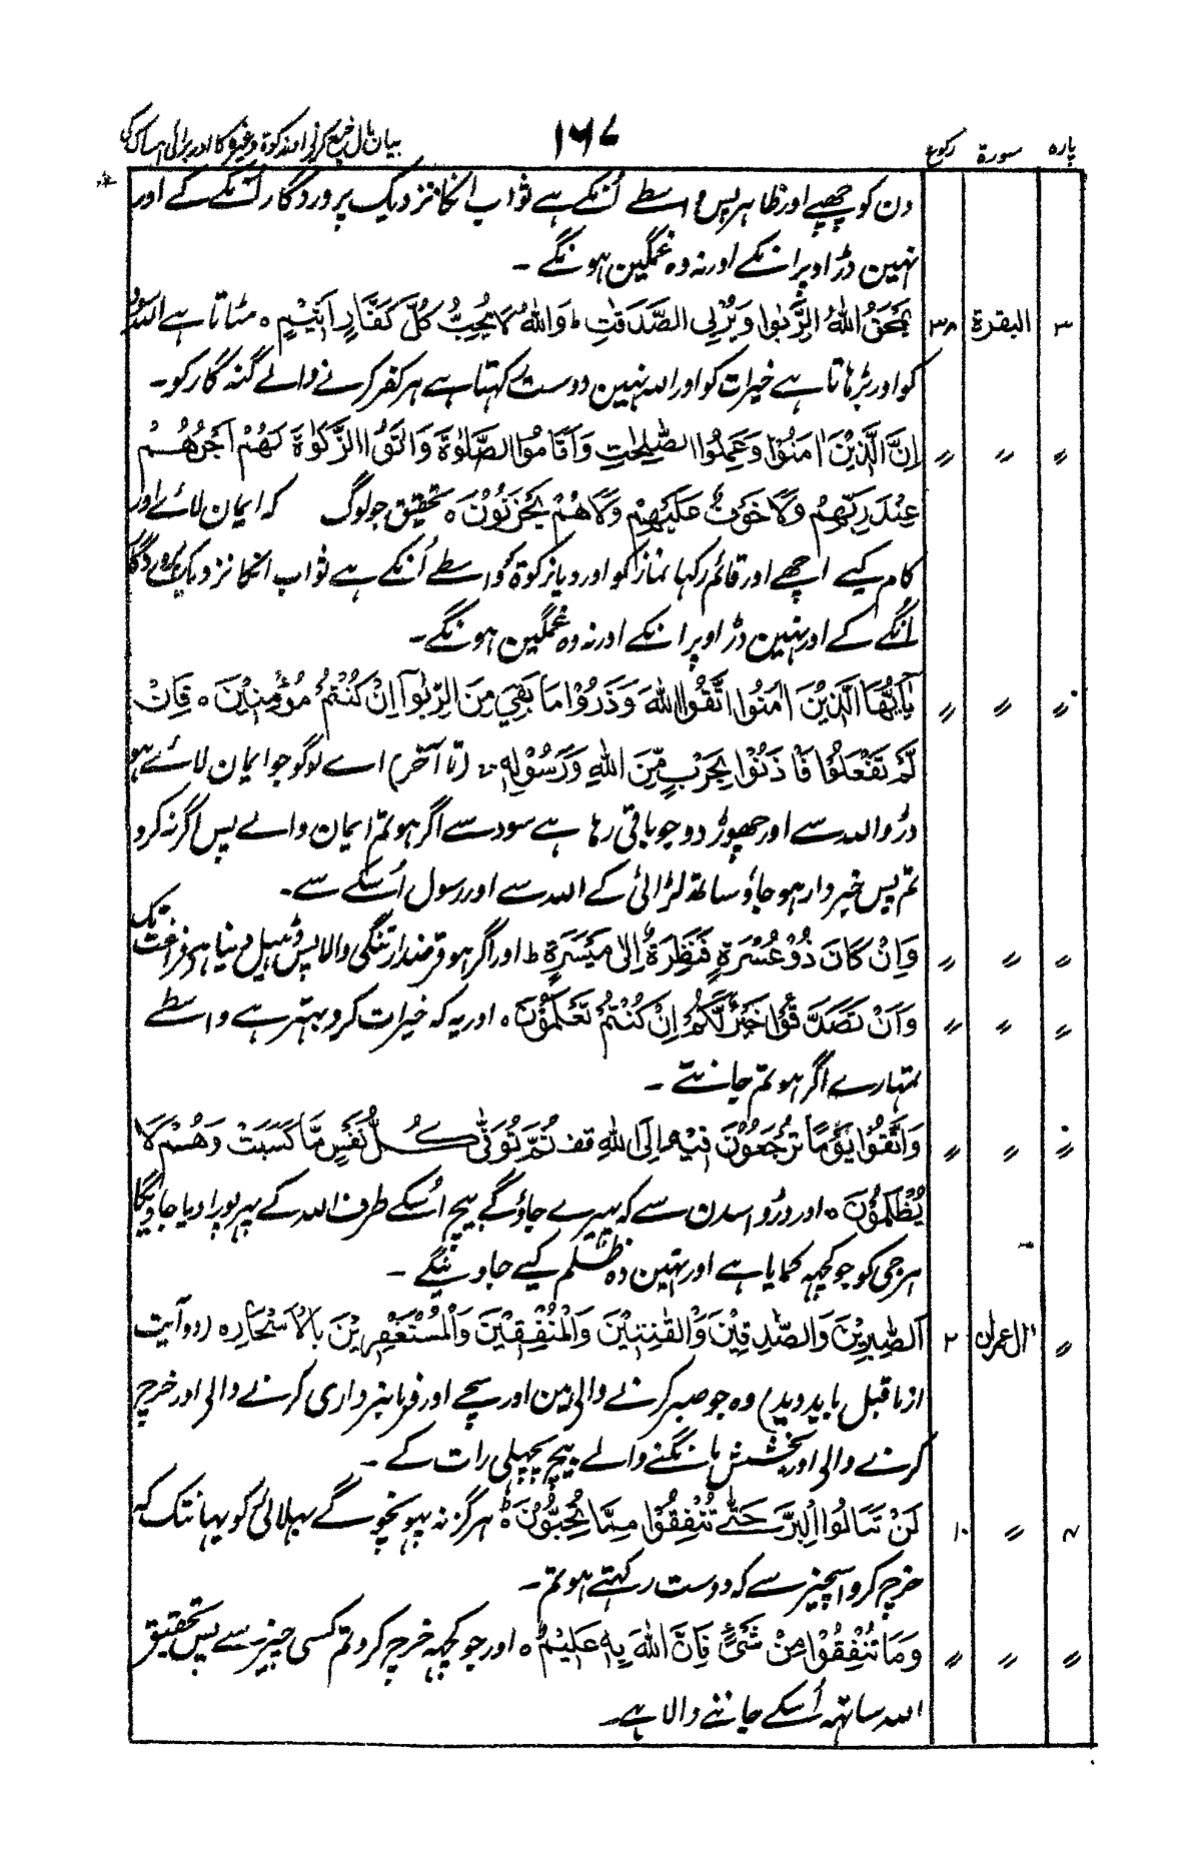 پارہ سورۃ رکوع ۱۶۷ بیان مال خرچ کرنے اور زکوۃ وغیرہ کا اور برائی امساک کی
دن کو چھپے اور ظاہر پس واسطے اُنکے ہے ثواب انکا نزدیک پروردگار اُنکے کے اور
نہین ڈر اوپر انکے اور نہ وہ غمگین ہونگے ۔
۳ البقرۃ ۳۸ یَمْحَقُ اللّٰهُ الرِّبٰوا وَیُرْبِی الصَّدَقٰتِ ؕ وَاللّٰهُ لَا یُحِبُّ کُلَّ کَفَّارٍ اَثِیْمٍ ہ مٹاتا ہے اللہ سود
کو اور بڑہاتا ہے خیرات کو اور اللہ نہین دوست رکہتا ہے ہر کفر کرنے والے گنہ گار کو ۔
〃 〃 〃 اِنَّ الَّذِیْنَ اٰمَنُوْا وَعَمِلُوا الصّٰلِحٰتِ وَاَقَامُوا الصَّلٰوةَ وَاٰتَوُا الزَّکٰوةَ لَهُمْ اَجْرُهُمْ
عِنْدَ رَبِّهِمْ وَلَا خَوْفٌ عَلَیْهِمْ وَلَا هُمْ یَحْزَنُوْنَ ہ تحقیق جو لوگ کہ ایمان لائے اور
کام کیے اچھے اور قائم رکہا نماز کو اور دیا زکوۃ کو واسطے اُنکے ہے ثواب انکا نزدیک پروردگار
اُنکے کے اور نہین ڈر اوپر انکے اور نہ وہ غمگین ہونگے ۔
〃 〃 〃 یٰۤاَیُّهَا الَّذِیْنَ اٰمَنُوا اتَّقُوا اللّٰهَ وَذَرُوْا مَا بَقِیَ مِنَ الرِّبٰۤوا اِنْ کُنْتُمْ مُّؤْمِنِیْنَ ہ فَاِنْ
لَّمْ تَفْعَلُوْا فَاْذَنُوْا بِحَرْبٍ مِّنَ اللّٰهِ وَرَسُوْلِهٖ (تا آخر) اے لوگو جو ایمان لائے ہو
ڈرو اللہ سے اور چھوڑ دو جو باقی رہا ہے سود سے اگر ہو تم ایمان والے پس اگر نہ کرو
تم پس خبردار ہو جاؤ ساتہ لڑائی کے اللہ سے اور رسول اُسکے سے ۔
〃 〃 〃 وَاِنْ کَانَ ذُوْ عُسْرَةٍ فَنَظِرَةٌ اِلٰی مَیْسَرَةٍ ط اور اگر ہو قرضدار تنگی والا پس ڈہیل دینا ہے فراغت تک
〃 〃 〃 وَاَنْ تَصَدَّقُوْا خَیْرٌ لَّکُمْ اِنْ کُنْتُمْ تَعْلَمُوْنَ ہ اور یہ کہ خیرات کرو بہتر ہے واسطے
تمہارے اگر ہو تم جانتے ۔
〃 〃 〃 وَاتَّقُوْا یَوْمًا تُرْجَعُوْنَ فِیْهِ اِلَی اللّٰهِ قف ثُمَّ تُوَفّٰی کُلُّ نَفْسٍ مَّا کَسَبَتْ وَهُمْ لَا
یُظْلَمُوْنَ ہ اور ڈرو اسدن سے کہ پہیرے جاؤ گے بیچ اُسکے طرف اللہ کے پہر پورا دیا جاویگا
ہر جی کو جو کچہہ کمایا ہے اور نہین وہ ظلم کیے جاوینگے ۔
〃 اٰل عمران ۲ اَلصّٰبِرِیْنَ وَالصّٰدِقِیْنَ وَالْقٰنِتِیْنَ وَالْمُنْفِقِیْنَ وَالْمُسْتَغْفِرِیْنَ بِالْاَسْحَارِ ہ (دو آیت
از ما قبل باید دید) وہ جو صبر کرنے والی ہین اور سچے اور فرمانبرداری کرنے والی اور خرچ
کرنے والی اور بخشش مانگنے والے بیچ پچہلی رات کے ۔
۴ 〃 ۱۰ لَنْ تَنَالُوا الْبِرَّ حَتّٰی تُنْفِقُوْا مِمَّا تُحِبُّوْنَ ہ ہرگز نہ پہونچو گے بہلائی کو یہانتک کہ
خرچ کرو اسچیز سے کہ دوست رکہتے ہو تم ۔
〃 〃 〃 وَمَا تُنْفِقُوْا مِنْ شَیْءٍ فَاِنَّ اللّٰهَ بِهٖ عَلِیْمٌ ہ اور جو کچہہ خرچ کرو تم کسی چیز سے پس تحقیق
اللہ ساتہہ اُسکے جاننے والا ہے ۔